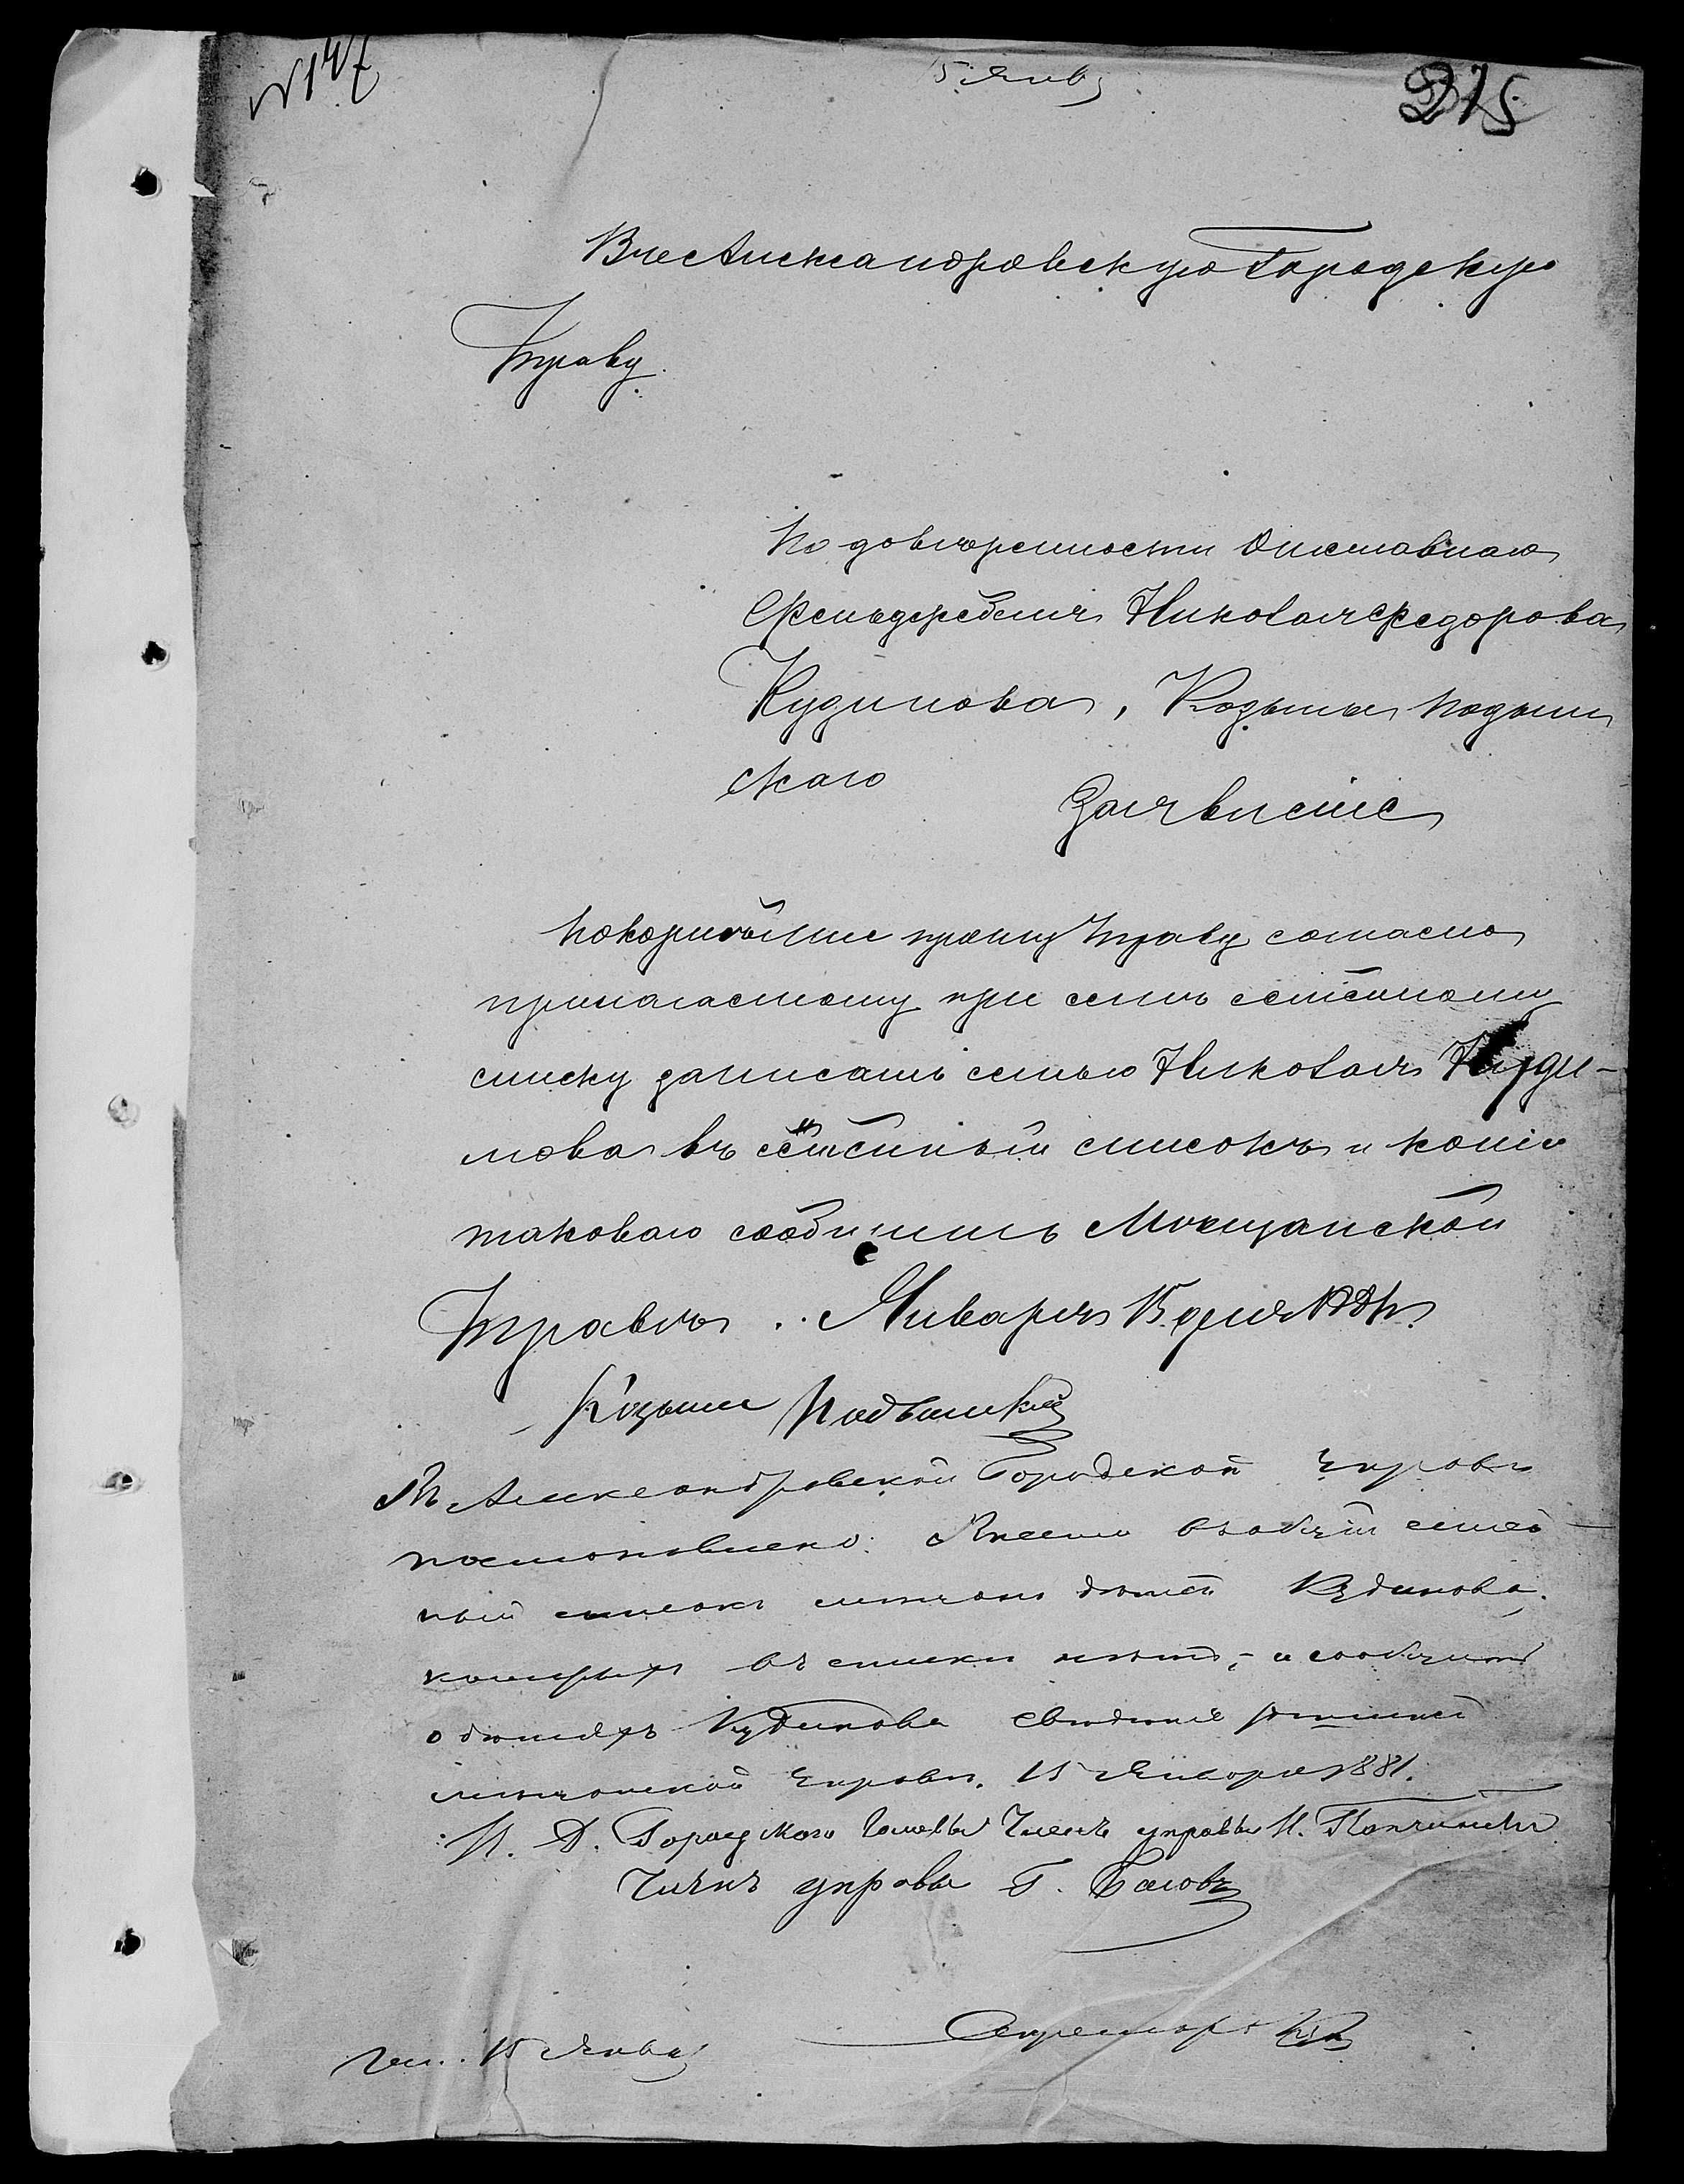 № 147
15 Янв
215
Въ Александровскую Городскую
Управу.
По довѣренности Отставнаго
Фельдфебеля Николая Федорова
Кудинова, Козьмы Подъим
скаго
Заявленіе
Покорнѣйше прошу Управу согласно
прилагаемому при семъ семейному
списку записать семью Николая Куди-
нова въ семейный списокъ и копію
таковаго сообщить Мѣщанской
Управѣ. Января 15 дня 1881 г.
Козьма
Въ Александровской Городской Управѣ
постановлено: Внести въ общій семей-
ный списокъ мѣщанъ дѣтей Кудинова,
которыхъ въ списки нѣтъ, и сообщить
о дѣтяхъ Кудинова свѣдѣніе
мѣщанской Управѣ. 15 Января 1881.
И. Д. Городского Головы Членъ управы И.
Членъ управы Г.
Секретарь
Исп. 15 Января